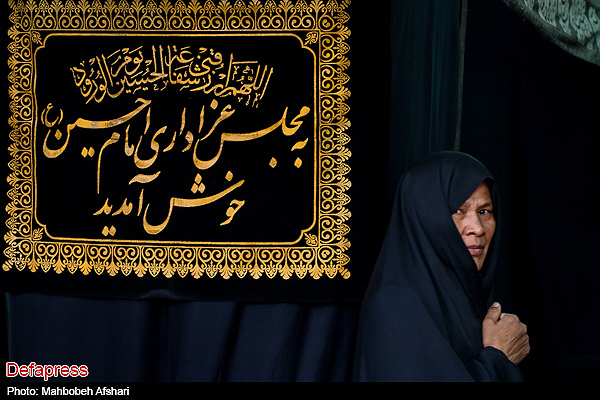 اللهم ارزقنی شفاعة الحسین یوم الورود
به مجلس عزاداری امام حسین (ع)
خوش آمدید
Defapress
Photo: Mahbobeh Afshari